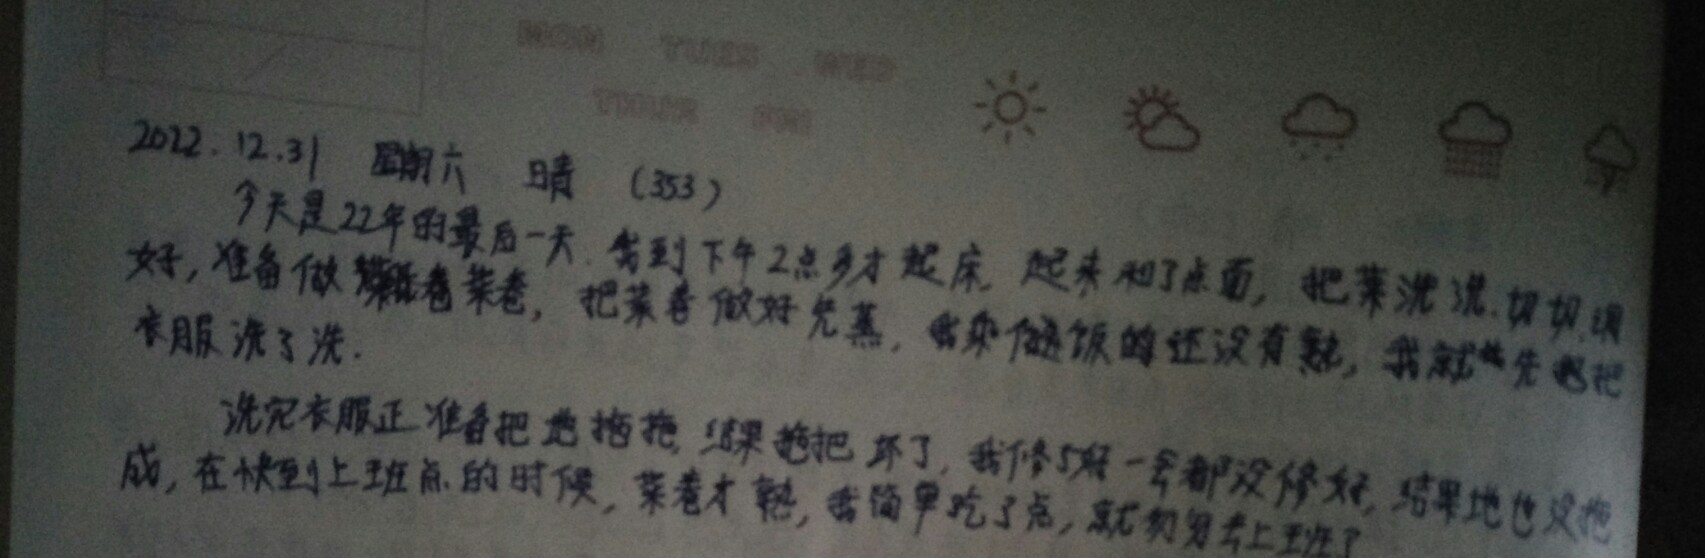 MON TUES WED
THUR FRI
2022.12.31 星期六 晴 (353)
今天是22年的最后一天. 到下午2点多才起床, 起来和了点面, 把菜洗洗.切切.调
好, 准备做菜卷, 把菜卷做好先蒸, 饭的还没有熟, 我就先把
衣服洗了洗.
洗完衣服正准备把地拖拖, 结果拖把坏了, 我修了好一会都没修好, 结果地也没拖
成, 在快到上班点的时候, 菜卷才熟, 我简单吃了点, 就匆匆去上班了